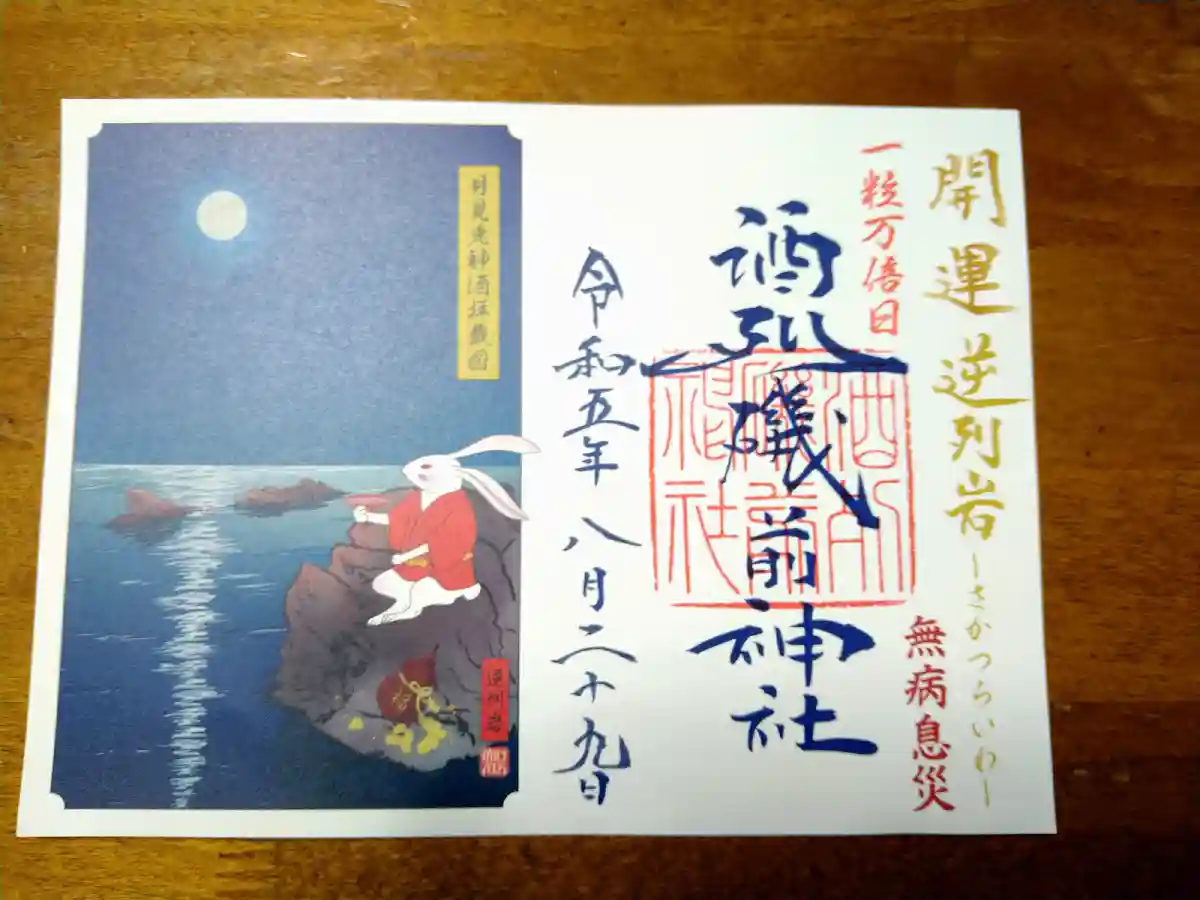 開運逆列岩ーさかつらいわー
一粒万倍日
無病息災
酒列磯前神社
酒列
磯前
神社
令和五年八月二十九日
月見兎神酒拝戴図
逆列岩